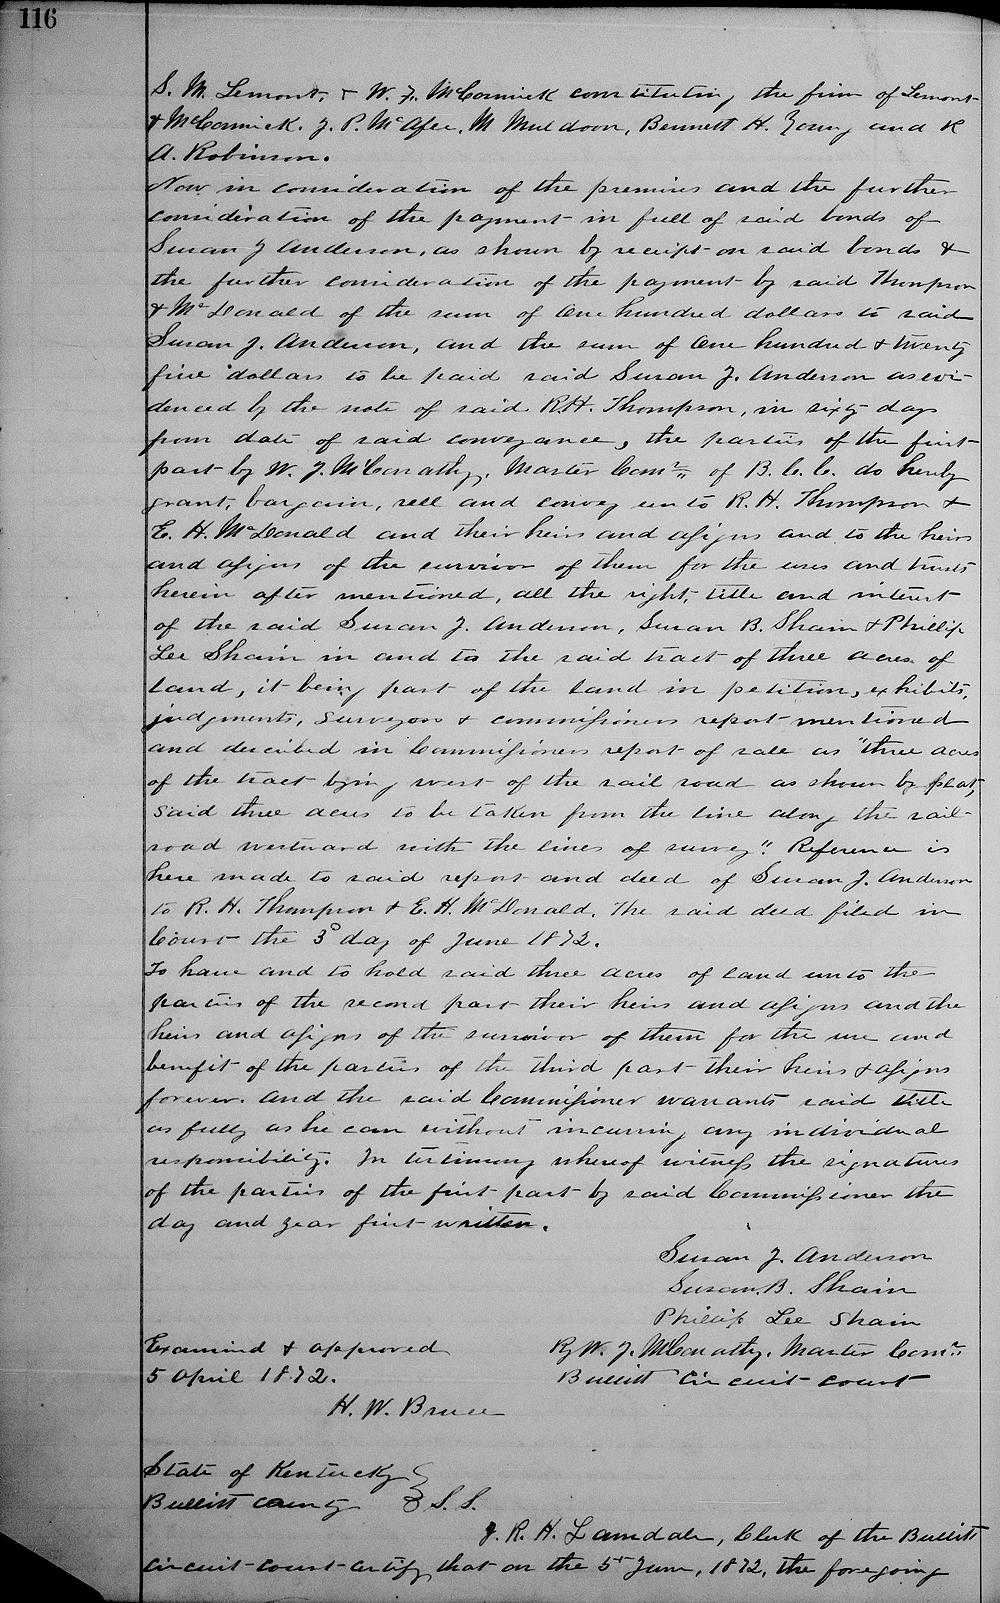 116
S. M. Lemont, & W. F. McCormick constituting the firm of Lemont
& McCormick. J. P. McAfee, M Muldoon, Bennett H. Young and R
A. Robinson.
Now in consideration of the premises and the further
consideration of the payment in full of said bonds of
Susan J Anderson, as shown by receipt on said bonds &
the further consideration of the payment by said Thompson
& McDonald of the sum of One hundred dollars to said
Susan J. Anderson, and the sum of One hundred & twenty
five dollars to be paid said Susan J. Anderson as evi-
denced by the note of said R.H. Thompson, in sixty days
from date of said conveyance, the parties of the first
part by W. J. McConathy, Master Comr. of B. C. C. do hereby
grant, bargain, sell and convey unto R. H. Thompson &
E. H. McDonald and their heirs and assigns and to the heirs
and assigns of the survivor of them for the uses and trusts
herein after mentioned, all the right, title and interest
of the said Susan J. Anderson, Susan B. Shain & Phillip
Lee Shain in and to the said tract of three acres of
land, it being part of the land in petition, exhibits,
judgments, surveyors & commissioners report mentioned
and described in Commissioners report of sale as "three acres
of the tract lying west of the rail road as shown by plat,
said three acres to be taken from the line along the rail-
road westward with the lines of survey". Reference is
here made to said report and deed of Susan J. Anderson
to R. H. Thompson & E. H. McDonald. The said deed filed in
Court the 3d day of June 1872.
To have and to hold said three acres of land unto the
parties of the second part their heirs and assigns and the
heirs and assigns of the survivor of them for the use and
benefit of the parties of the third part their heirs & assigns
forever. And the said Commissioner warrants said title
as fully as he can without incurring any individual
responsibility. In testimony whereof witness the signatures
of the parties of the first part by said Commissioner the
day and year first written.
Susan J. Anderson
Susan B. Shain
Phillip Lee Shain
Examined & approved By W. J. McConathy, Master Comr.
5 April 1872. Bullitt Circuit court
H. W. Bruce
State of Kentucky
Bullitt County S.S.
I. R. H. Lansdale, Clerk of the Bullitt
Circuit court certify that on the 5th June, 1872, the foregoing